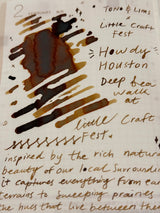 2
Tono & Lims
Little Craft
Fest
Howdy
Houston
Deep Sea
Walk at
little Craft
Fest.
inspired by the rich natural
beauty of our local Surroundin
it captures everything from
terrains to sweeping prairies
the hues that live between the